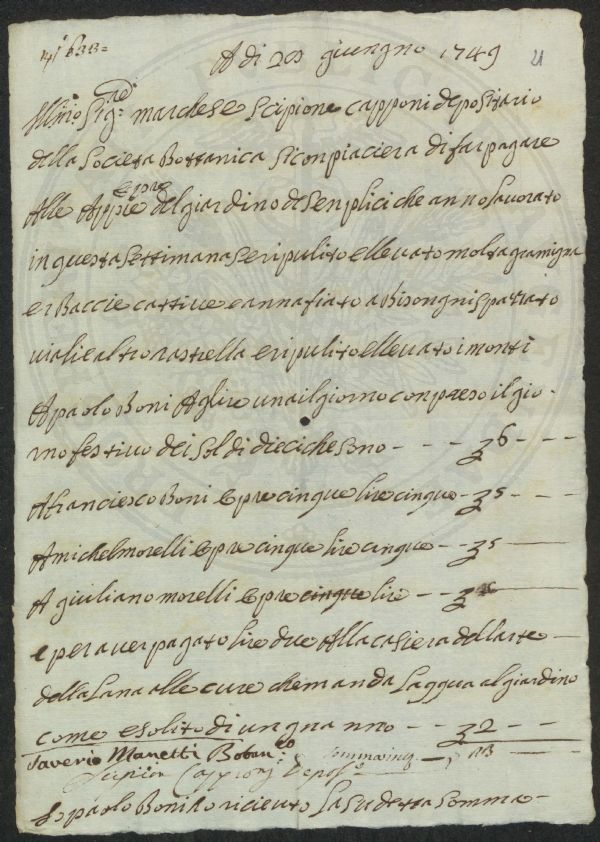 A di 28 giungno 1749 21
Ill.mo Sig.re marchese Scipione capponi depositario
della Societa Bottanica si conpiaciera di far pagare
Alle Appie opre del giardino de Senplici che anno lavorato
in questa settimana e ripulito e llevato molta gramigna
er Baccie cattive e annafiato a Bisongni spazzato
viali e altro rastrella e ripulito e llevato i monti
A paolo Boni A lire una il giorno conpreso il gio-
rno festivo dei soldi dieci che sono - - - 6 - - -
A franciesco Boni opre cinque lire cinque - 5 - -
A michel morelli opre cinque lire cinque - - 5 -
A giuliano morelli opre cinque lire - -
e per aver pagato lire due Alla casiera dell arte
della lana alle cure che manda l aqqua al giardino
come e solito di ungna nno - - 2 - -
Saverio Manetti Botan.co Sommaing. - 18
Scipion Capponi Depos.o
Io paolo Boni ho riceuto la sudetta somma -